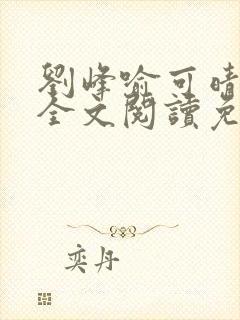 劉峰喻可晴
全文閱讀免
奕丹